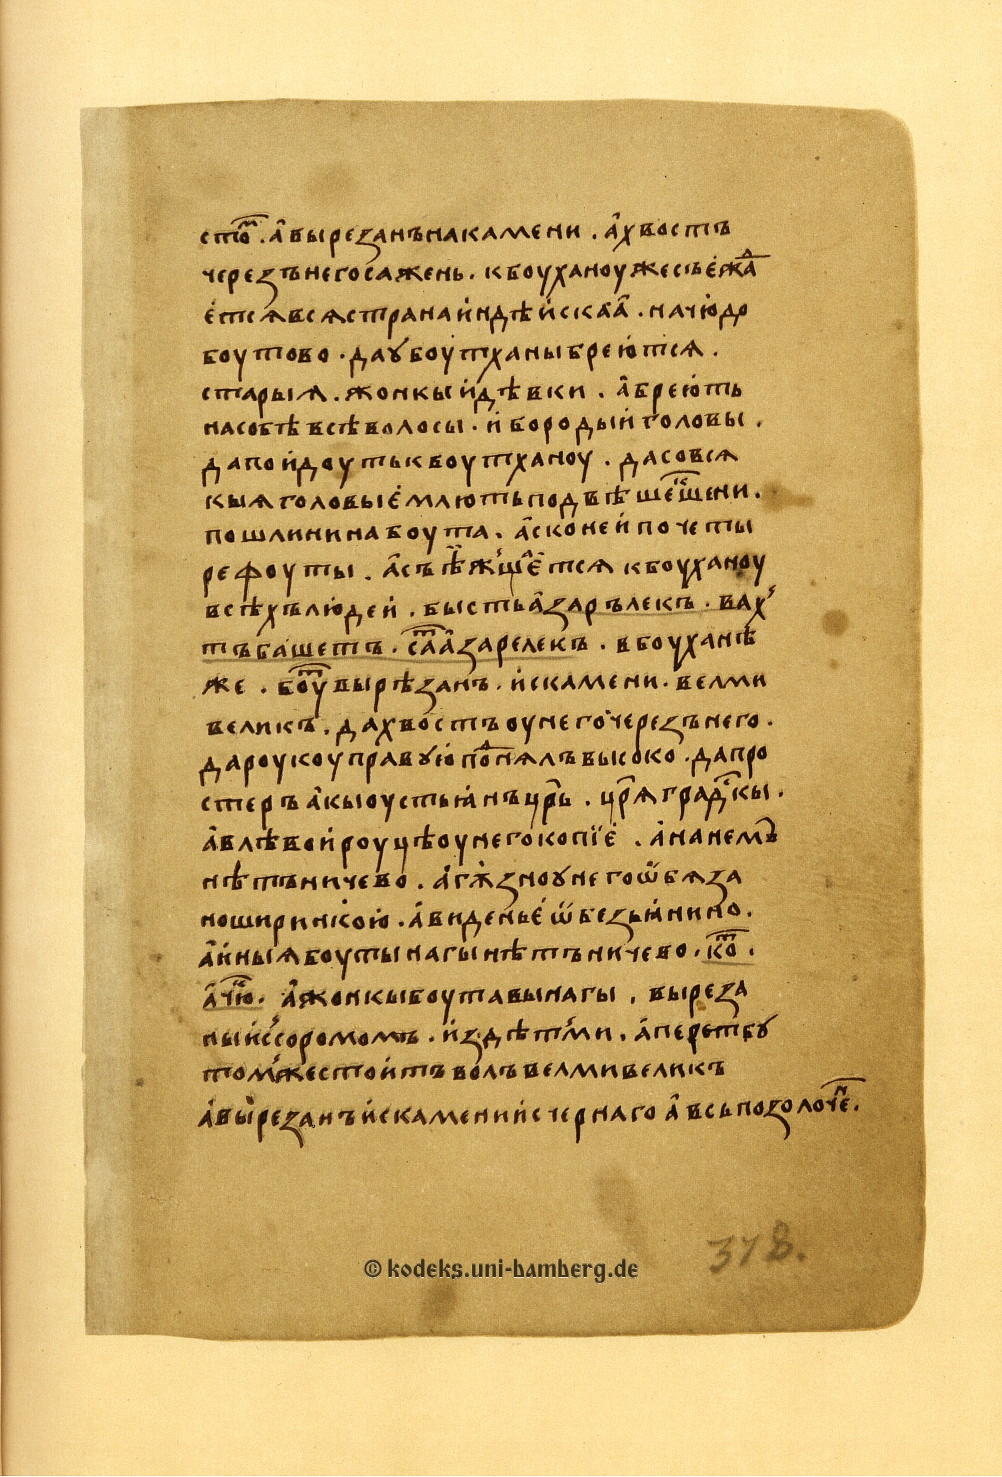 стоⷨ. а҆ вырезанъ на камени. а҆ хвостъ
через него сажень. к боухану же съе҆жⷣа
е҆тся всѧ страна и҆ндѣи҆скаꙗ. на чю҆до
боутово. да ꙋ боутханы брею҆тсѧ.
старыꙗ. жонкы и҆ дѣвки. а҆ брею҆ть
на собѣ всѣ волосы. и҆ бороды и҆ головы.
да пои҆доуть к боутханоу. да со всѧ
кыꙗ головы е҆млють по двѣ шешⷦ҇ени.
пошлини на боута. а҆ с конеи҆ по четы
ре фоуты. а҆ съѣжⷤща҆е҆тся к боуханоу
всѣхъ лю҆деи҆. бысты а҆заръ лекъ. вахⸯ
тъ башетъ. саⷮ а҆заре лекъ. в боуханѣ
же. боуⷮ вырѣзанъ. и҆с камени. велми
великъ. да хвостъ оу него через него.
да роукоу правꙋю҆ поⷣнялъ высоко. да про
стеръ а҆кы оустьꙗнъ црь҃. црѧ҃ градⷭ҇кы.
а҆ в лѣвои҆ роуцѣ оу него копїе҆. а҆ на немъ
нѣтъ ничево. а҆ гꙋзно у него ѿбѧза
но ширинкою҆. а҆ виденье҆ ѿбезьꙗнино.
а҆ и҆ныꙗ боуты нагы нѣтъ ничево. коⷮ.
а҆чюⷦ҇. а҆ жонкы боутавы нагы, выреза
ны и҆ с соромомъ. и҆ з дѣтⸯми. а҆ перет бꙋ
томⸯ же стои҆тъ волъ велми великъ
а҆ вырезанъ и҆с камени и҆с чернаго а҆ всь позолочеⷩ.
378.
© kodeks.uni-bamberg.de